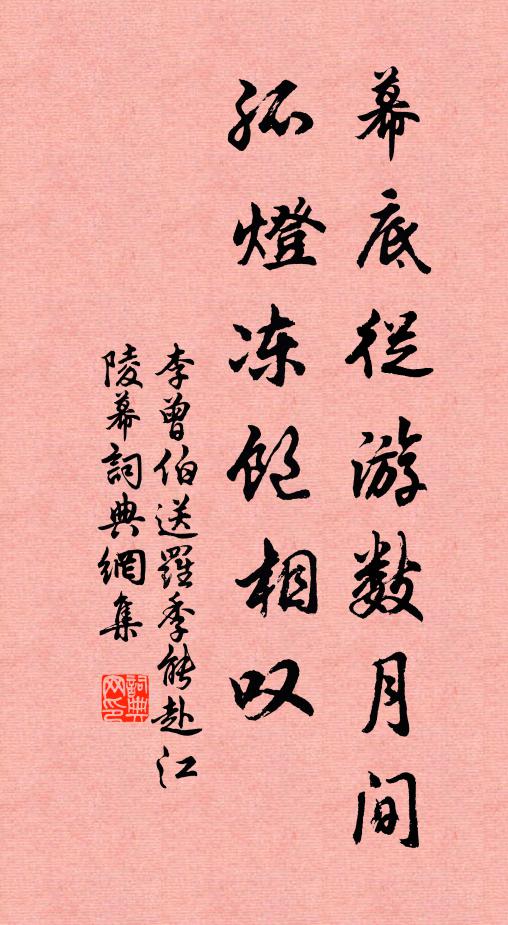 幕底从游数月间
孤燈冻饱相叹
李曾伯送羅季能赴江
陵幕詞典網集
詞典网印